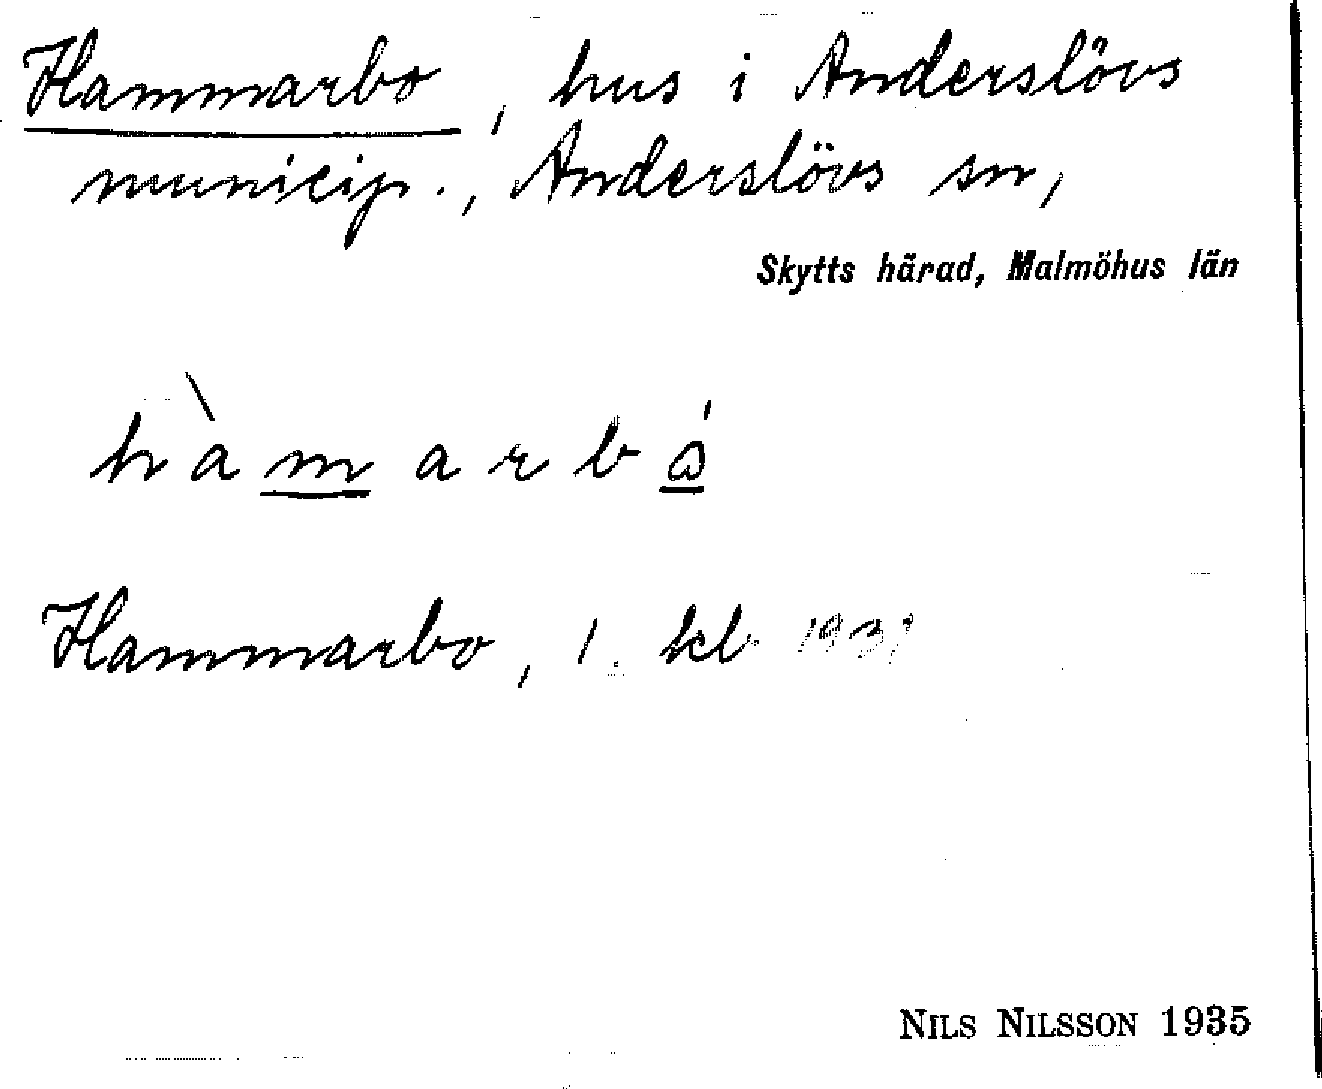 Hammarbo, hus i Anderslövs
municip., Anderslövs sn,
Skytts härad, Malmöhus län
hàmarbó
Hammarbo, 1. kb 1931
NILS NILSSON 1935